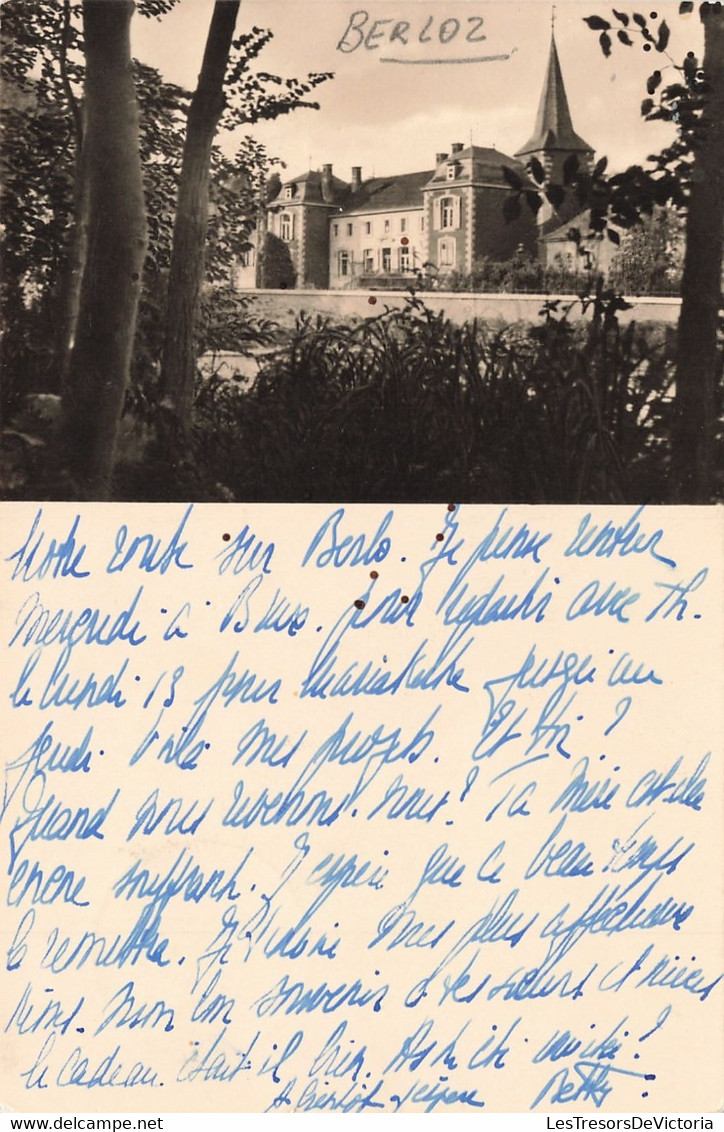 BERLOZ
Notre route sur Berlo. Je pense rentrer
Mercredi à Brux. pour repartir avec Th.
le lundi 13 pour Mariakerke jusqu'au
jeudi. Voilà mes projets. Et toi?
Quand nous reverrons-nous? Ta Mère est-elle
encore souffrante. J'espère que ce beau temps
la remettra. Je t'envoie mes plus affectueux
Mon bon souvenir à tes soeurs et nièces
le cadeau était il bien. As tu été invitée?
A bientôt j'espère Betty
LesTresorsDeVictoria